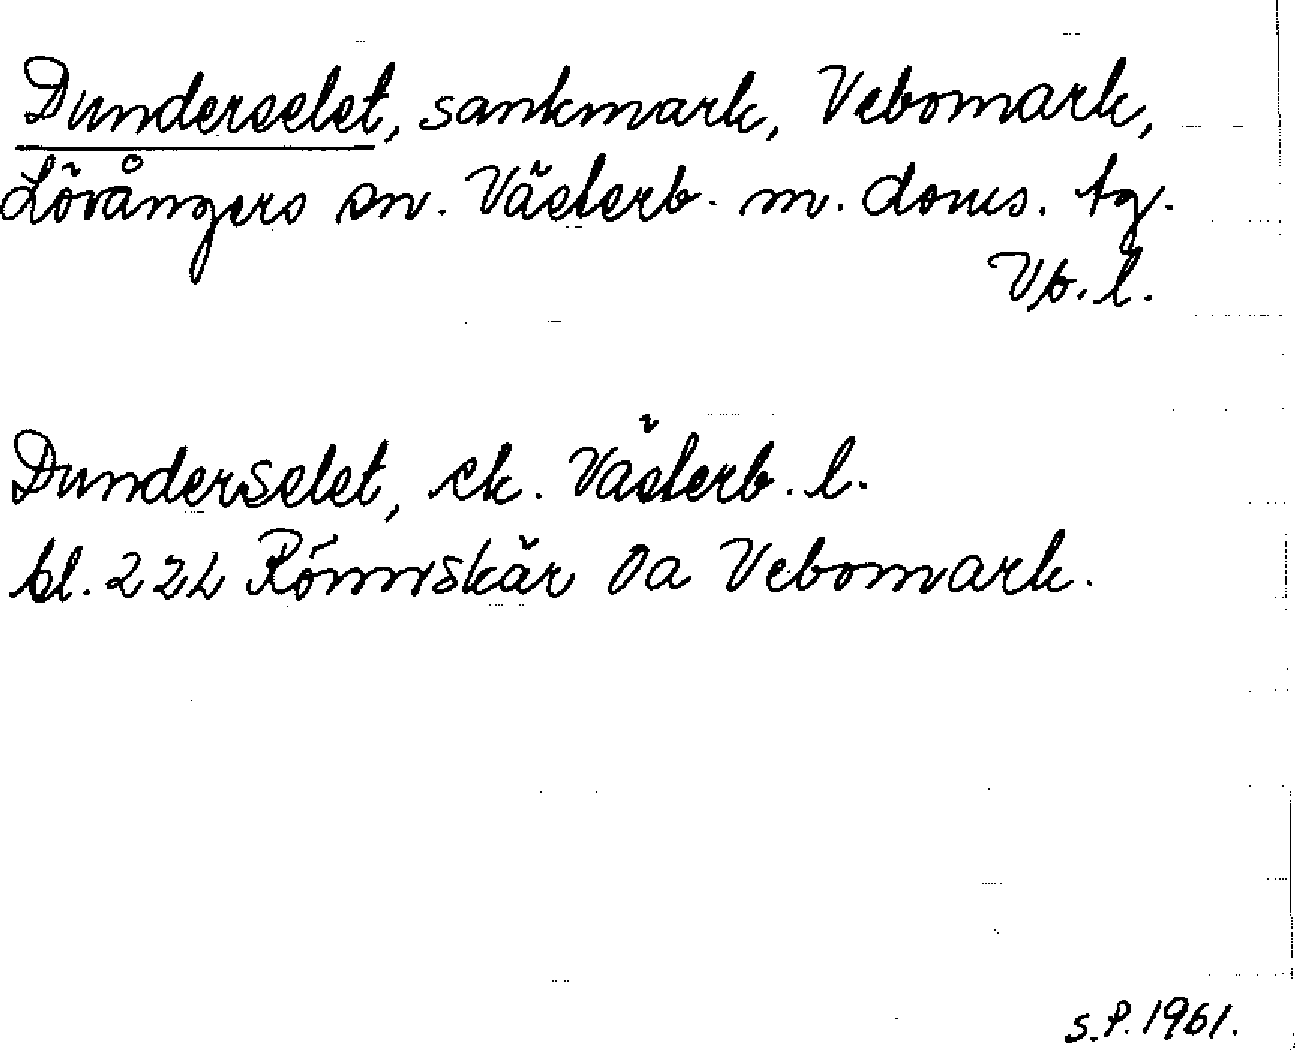 Dunderselet, sankmark, Vebomark,
Lövångers sn. Västerb. m. doms. tg.
Vb. l.
Dunderselet, ek. Västerb. l.
bl. 222 Rönnskär Oa Vebomark.
S.P. 1961.